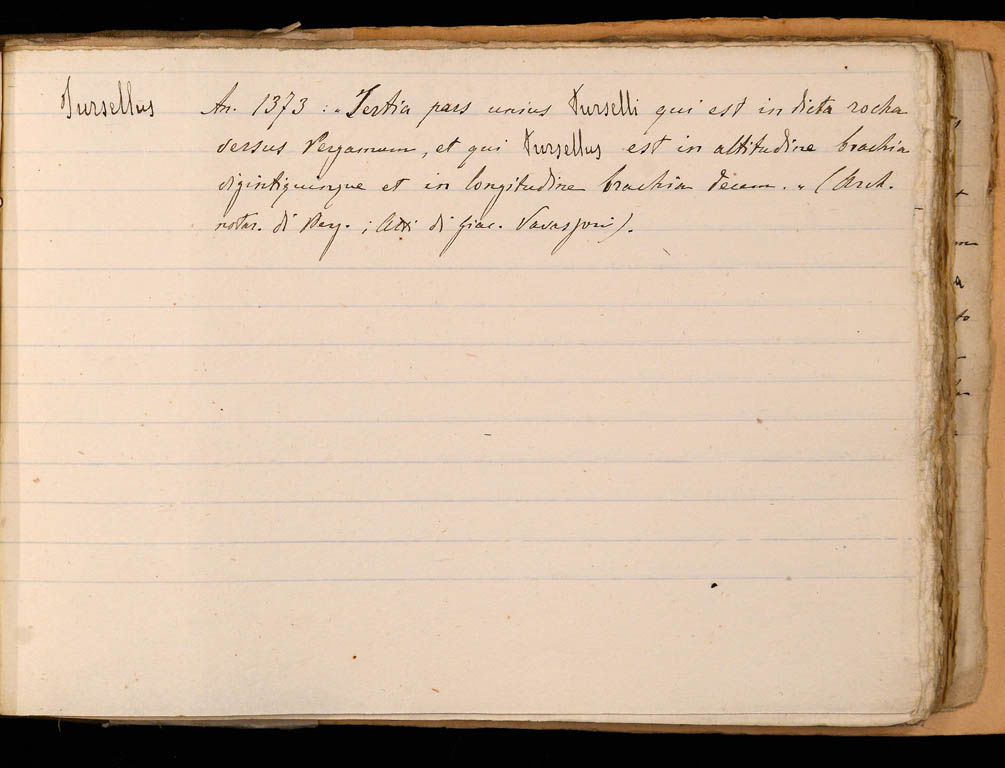 Tursellus An. 1373 : "Tertia pars unius Turselli qui est in dicta rocha
versus Pergamum, et qui Tursellus est in altitudine brachia
vigintiquinque et in longitudine brachia decem." (Arch.
notar. di Berg. ; Atti di Giac. Vavassori).